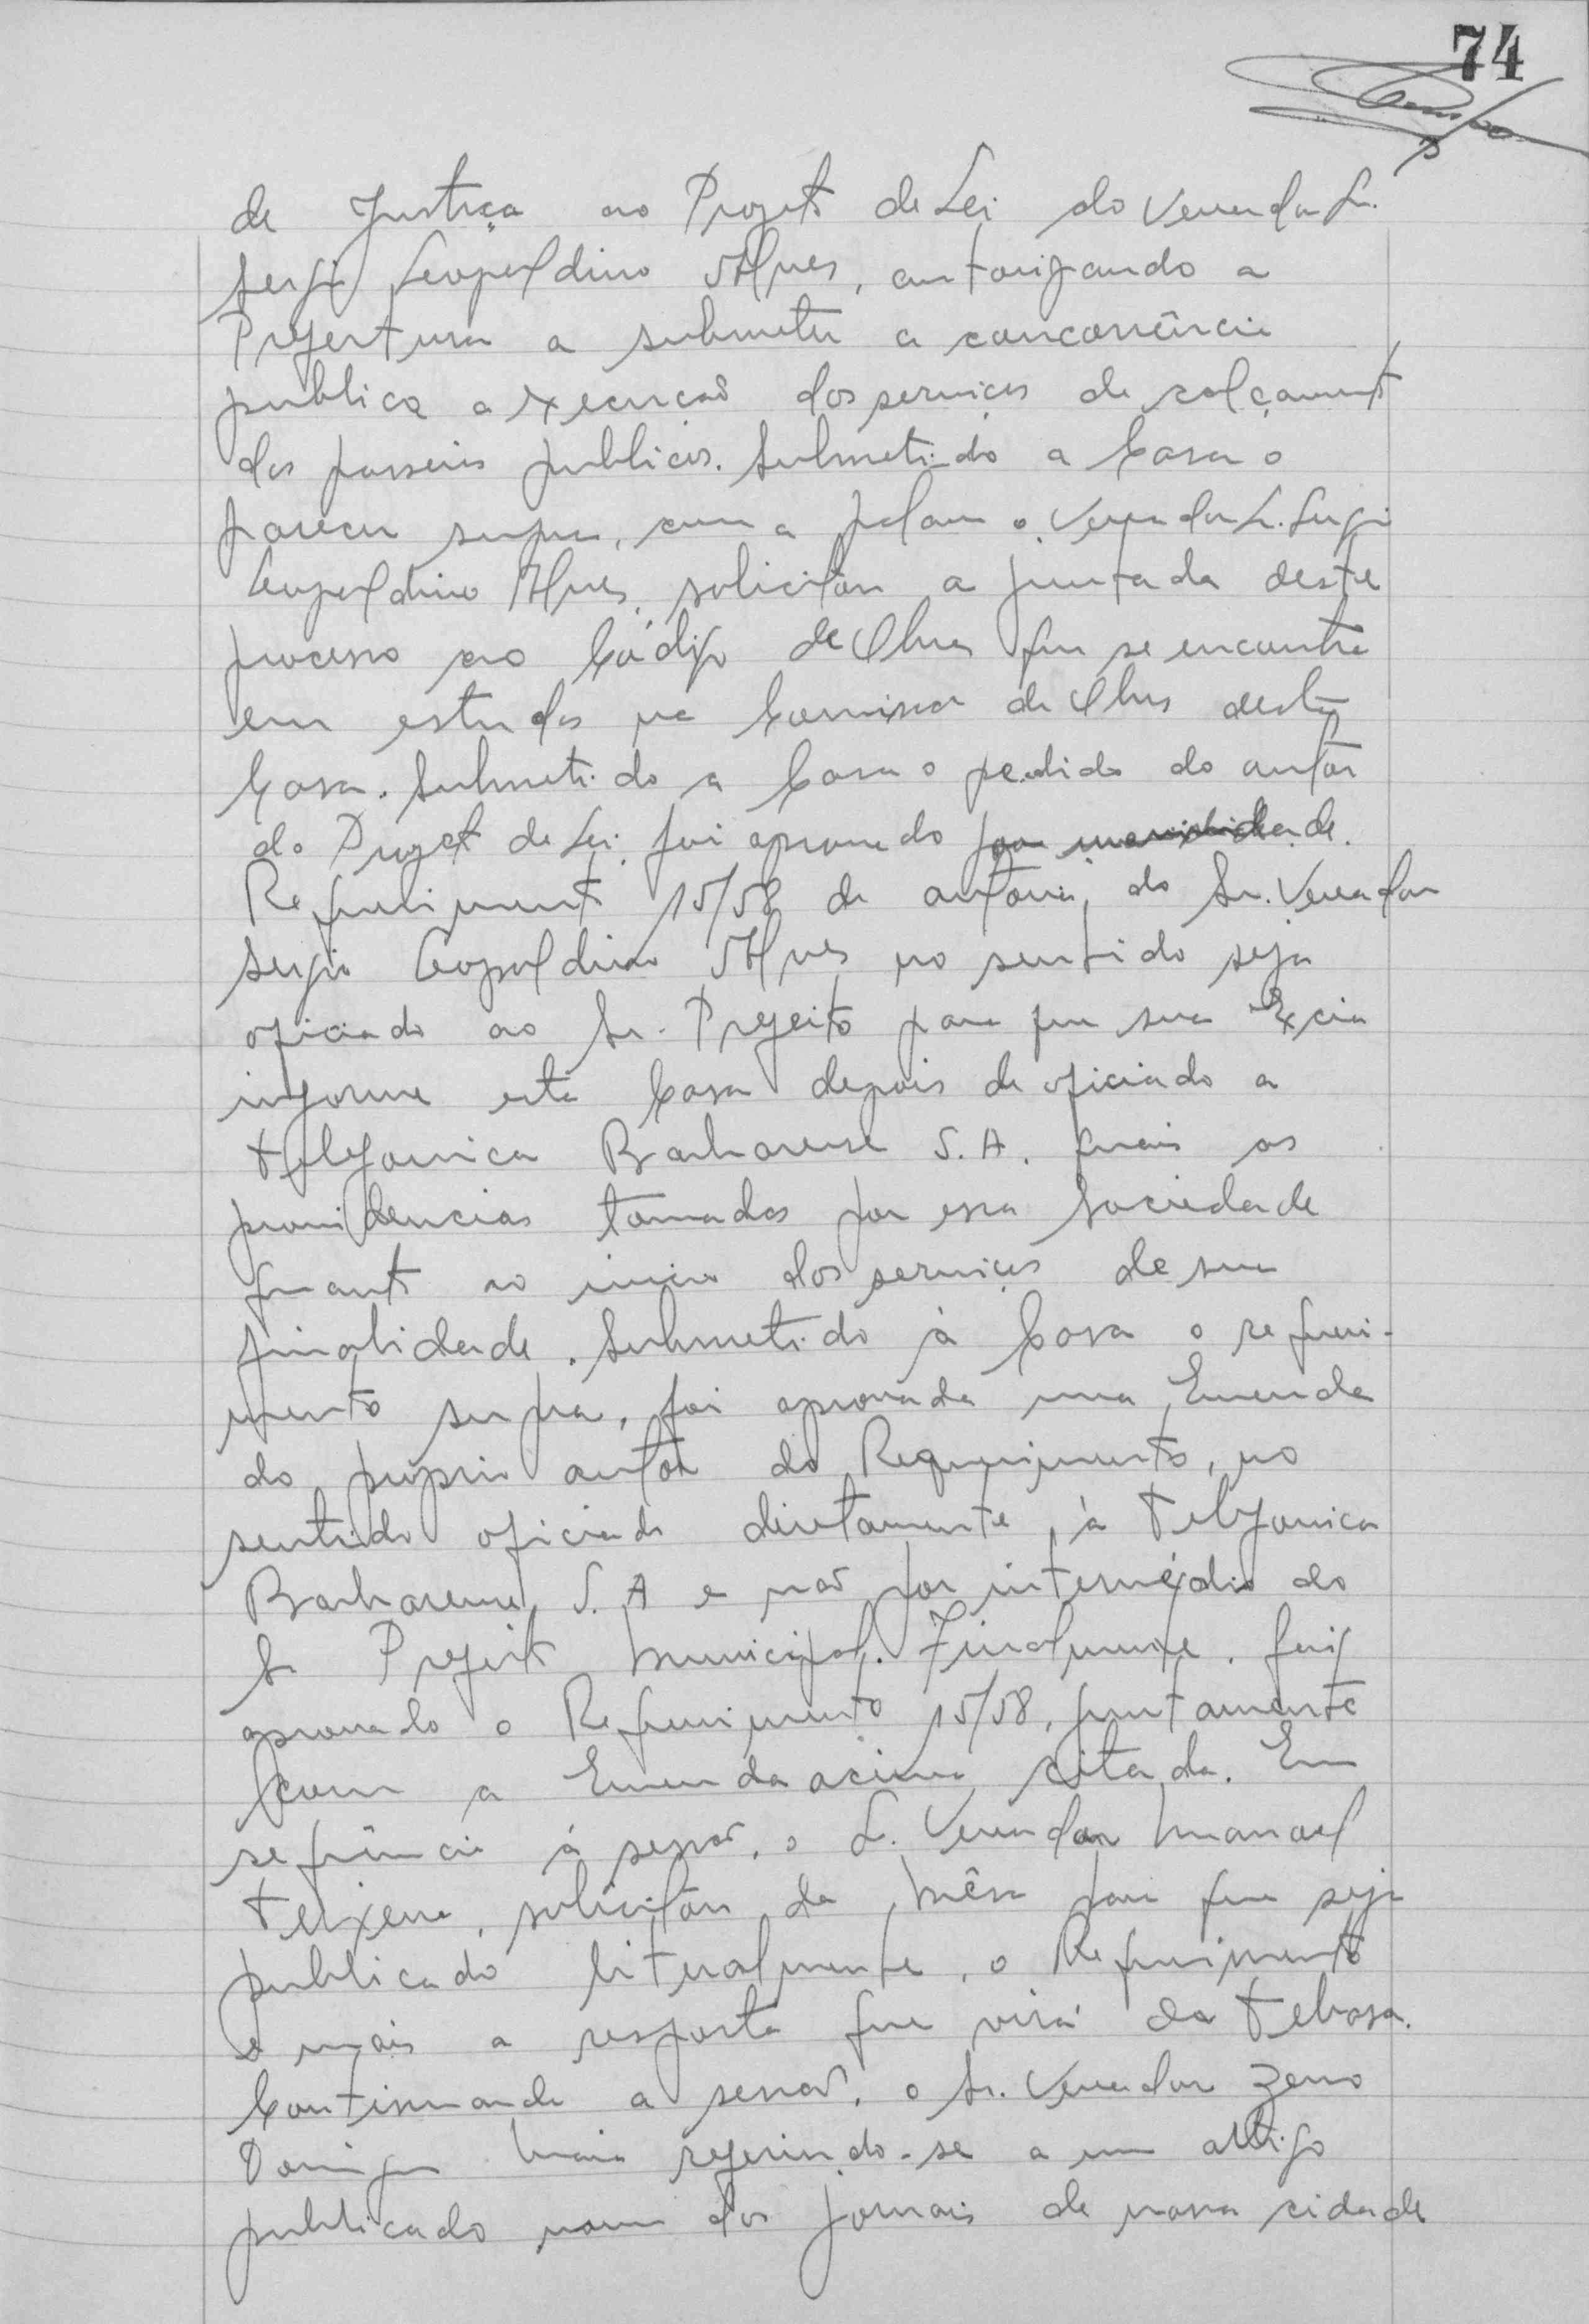 74
de Justiça ao Projeto de Lei do Vereador Sr.
Sergio Leopoldino Alves, autorizando a
Prefeitura a submeter a concorrência
publica a execução dos serviços de calçamento
dos passeios publicos. Submetido a Casa o
parecer supra, com a palavra o Vereador Sr. Sergio
Leopoldino Alves, solicitou a juntada deste
processo ao Código de Obras que se encontra
em estudos na Comissão de Obras desta
Casa. Submetido a Casa o pedido do autor
do Projeto de Lei, foi aprovado por unanimidade.
Requerimento 15/58 de autoria do Sr. Vereador
Sergio Leopoldino Alves no sentido seja
oficiado ao Sr. Prefeito para que sua Excia
informe esta Casa depois de oficiado a
Telefonica Barbarense S.A. quais as
providencias tomadas por essa Sociedade
quanto ao inicio dos serviços de sua
finalidade. Submetido à Casa o requeri-
mento supra, foi aprovada uma Emenda
do proprio autor do Requerimento, no
sentido oficiado diretamente à Telefonica
Barbarense S.A e não por intermédio do
Sr Prefeito Municipal. Finalmente, foi
aprovado o Requerimento 15/58, juntamente
com a Emenda acima citada. Em
sequência à sessão, o Sr. Vereador Manoel
Teixeira, solicitou da Mêsa para que seja
publicado literalmente, o Requerimento
e mais a resposta que virá da Tebasa.
Continuando a sessão, o Sr. Vereador Zeno
Domingos Maia referindo-se a um artigo
publicado num dos jornais de nossa cidade